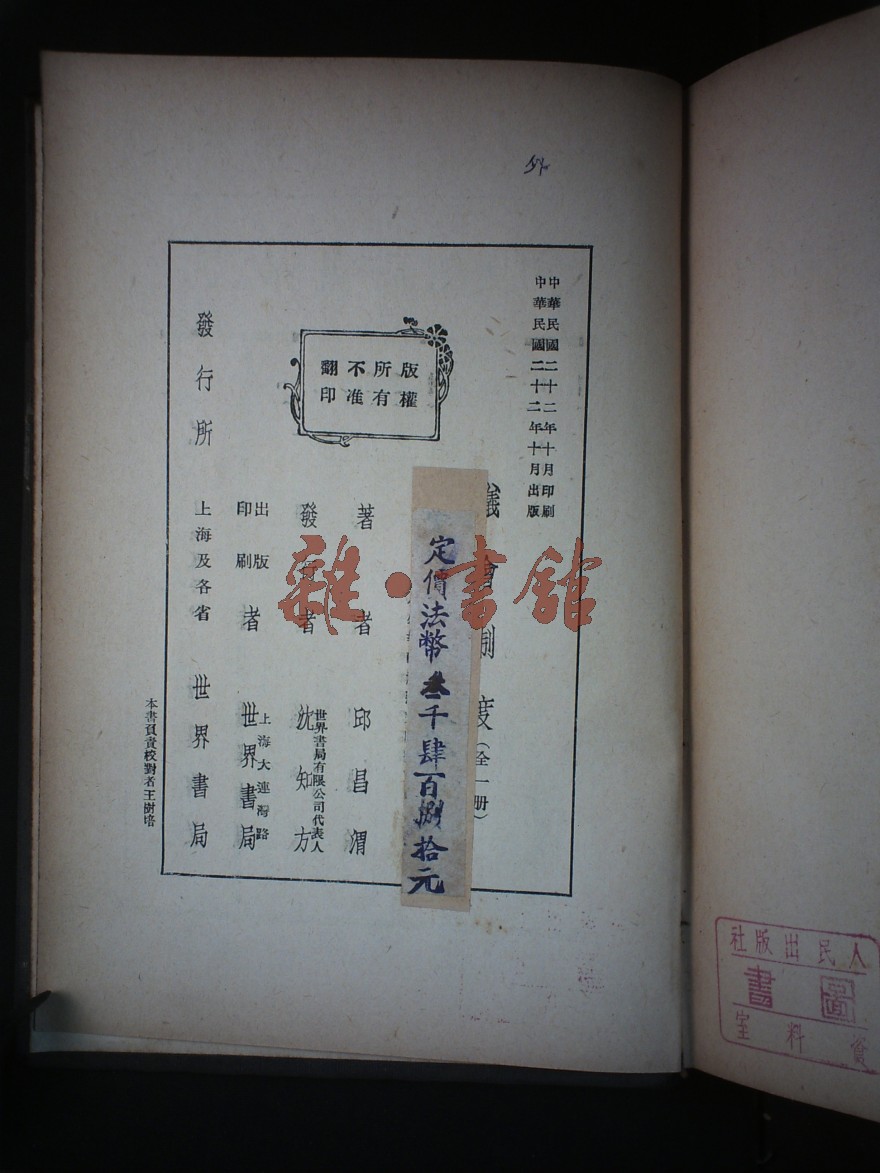 中華民國二十二年十月印刷
中華民國二十二年十月出版
議會制度（全一册）
定價法幣叁千肆百捌拾元
版權
所有
不准
翻印
著者 邱昌渭
發行者 世界書局有限公司代表人 沈知方
出版
印刷者 上海大連灣路 世界書局
發行所 上海及各省 世界書局
本書負責校對者王樹培
雜·書館
人民出版社
圖書
資料室